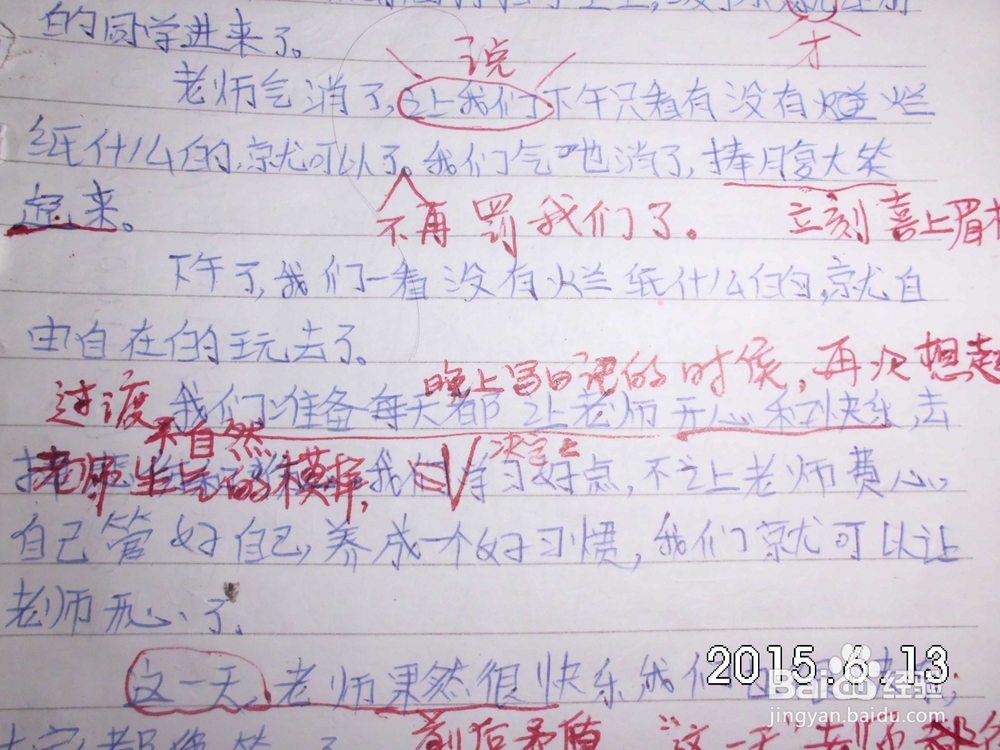 的同学进来了。
才
说
老师气消了,让我们下午只看有没有烂
纸什么的,就可以了。我们气也消了,捧腹大笑
起来。
不再罚我们了。
立刻喜上眉
下午了,我们一看没有烂纸什么的,就自
由自在的玩去了。
晚上写日记的时候,再次想起
过渡
我们准备每天都让老师开心和快乐,去
不自然
决定
老师生气的模样,我们学习好点,不让老师费心。
自己管好自己,养成一个好习惯,我们就可以让
老师开心了。
这一天,老师果然很快乐我们
2015.6.13
前后矛盾
"这一天"
Baidu经验
jingyan.baidu.com